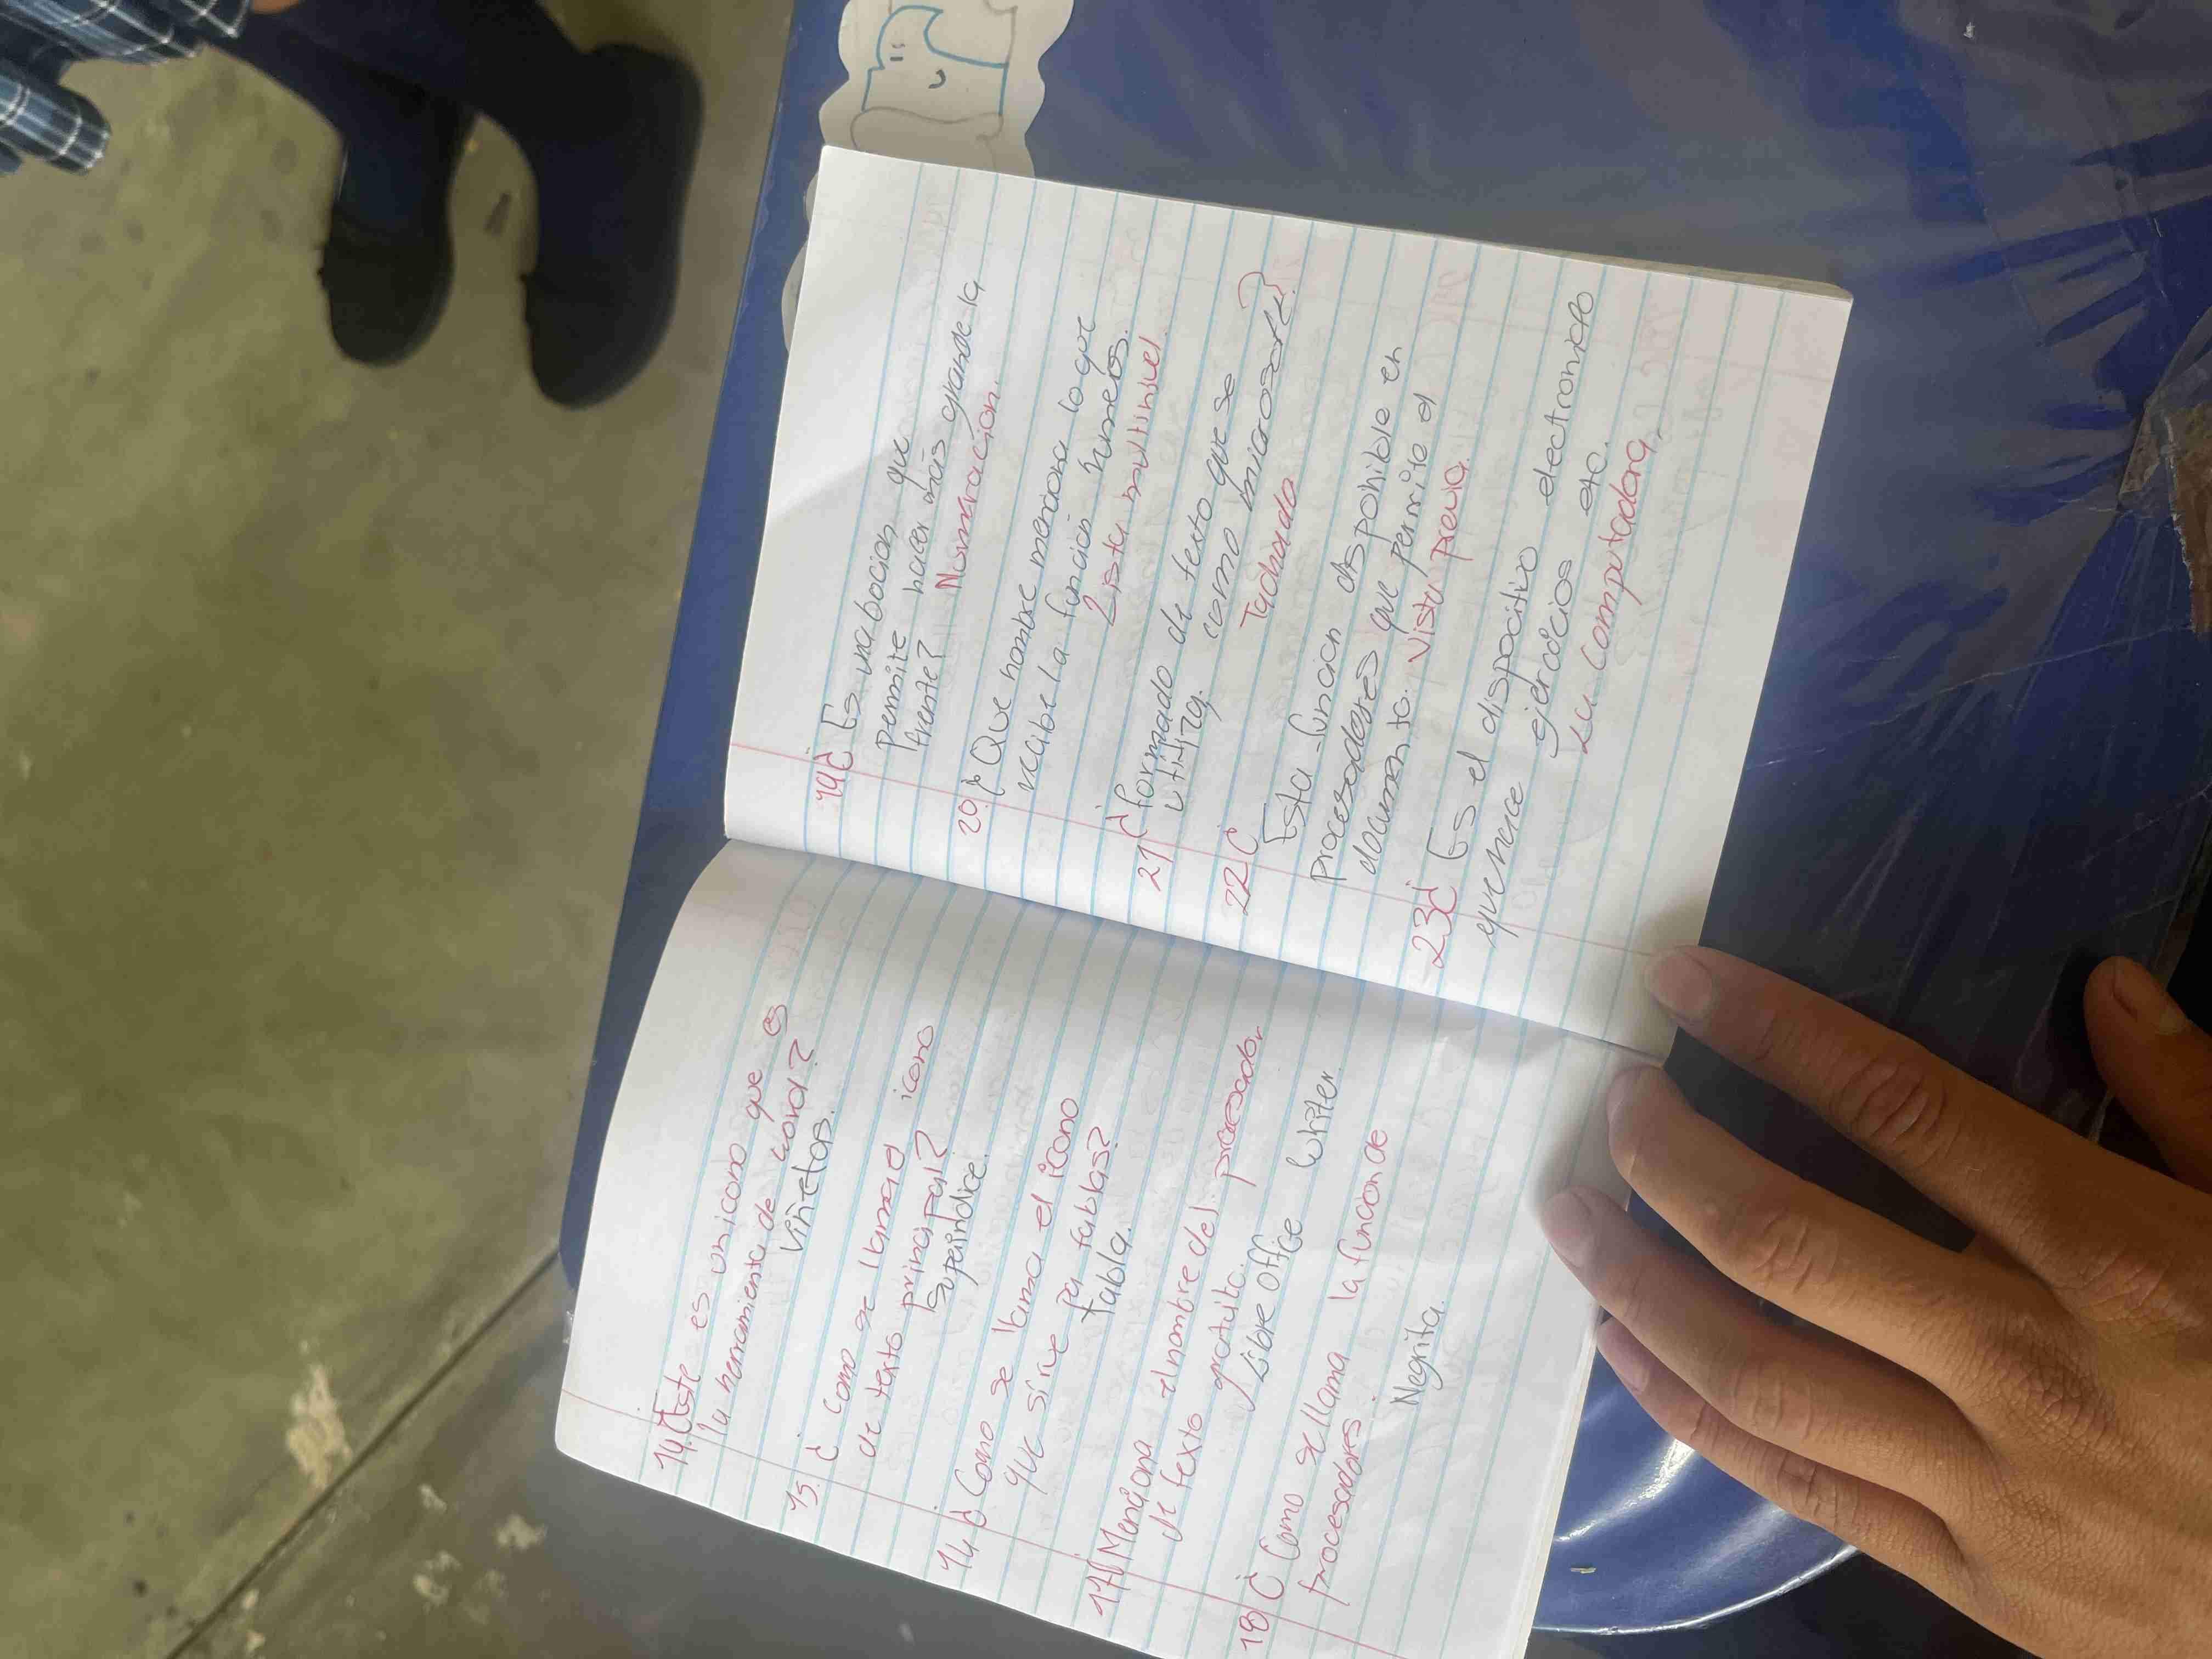 14.¿Este es un icono que es
la herramienta de word?
viñetas.
15. ¿ como se llama el icono
de texto principal?
superindice.
14 ¿ Como se llama el icono
que sirve pa tablas?
tabla.
17¿ Menciona el nombre del procesador
de texto gratuito.
Libre Office Writer
18 ¿ Como se llama la funcion de
procesadores.
Negrita.
19¿ Es una bocion que
permite hacer más grande la
frente? Numeración.
20. ¿ Que nombre menciona lo que
recibe la función numeros.
Lista multinivel.
21 ¿ formado de texto que se
utiliza como microsoft?
Tachado
22 ¿
Esta función disponible en
procesadores que permite el
documento. Vista previa.
23¿ Es el dispocitivo electronico
que hace ejercicios etc.
La computadora.